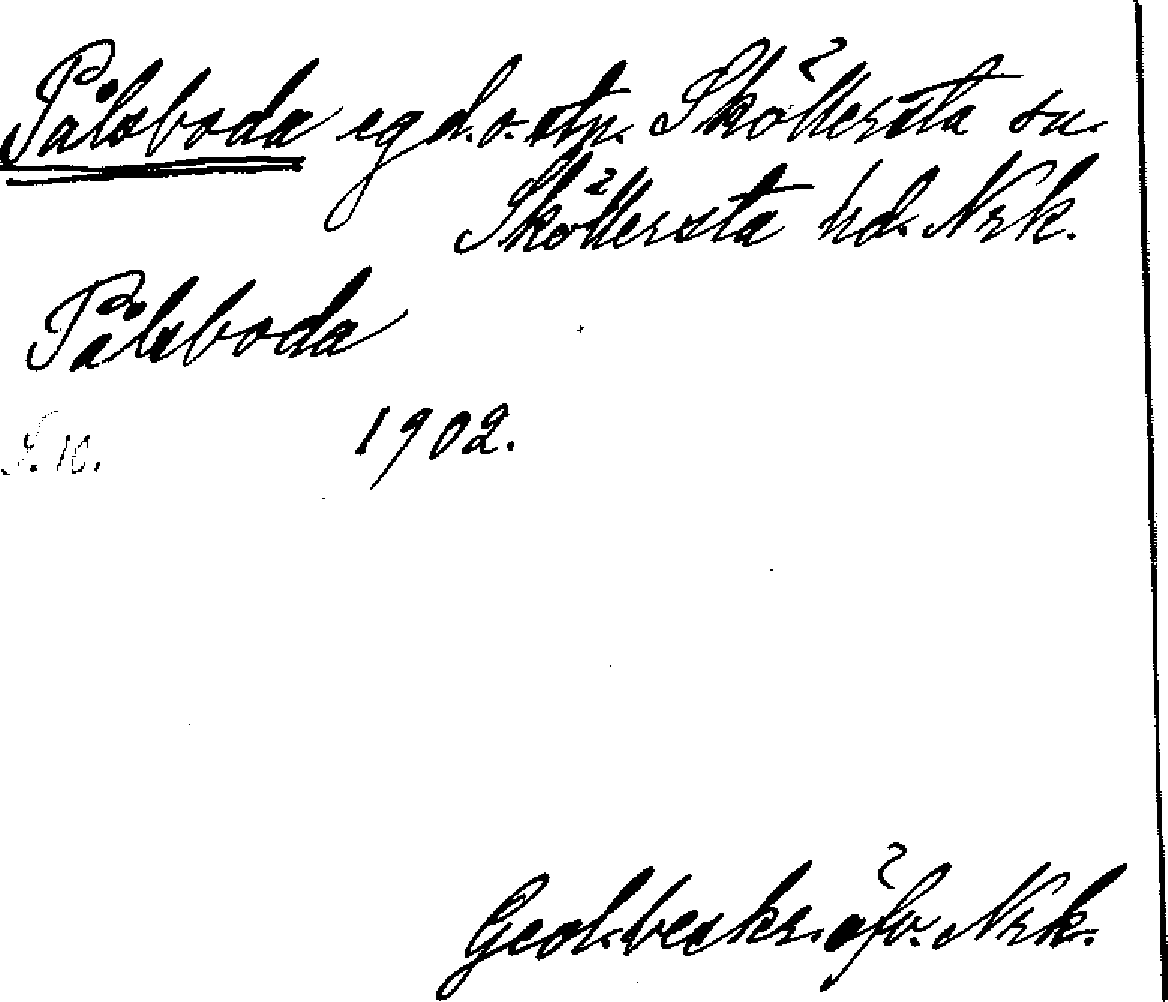 Pålsboda egd. o. stn. Sköllersta sn.
Sköllersta hd. Nrk.
Pålsboda
S. 10. 1902.
Geol. beskr. öfv. Nrk.